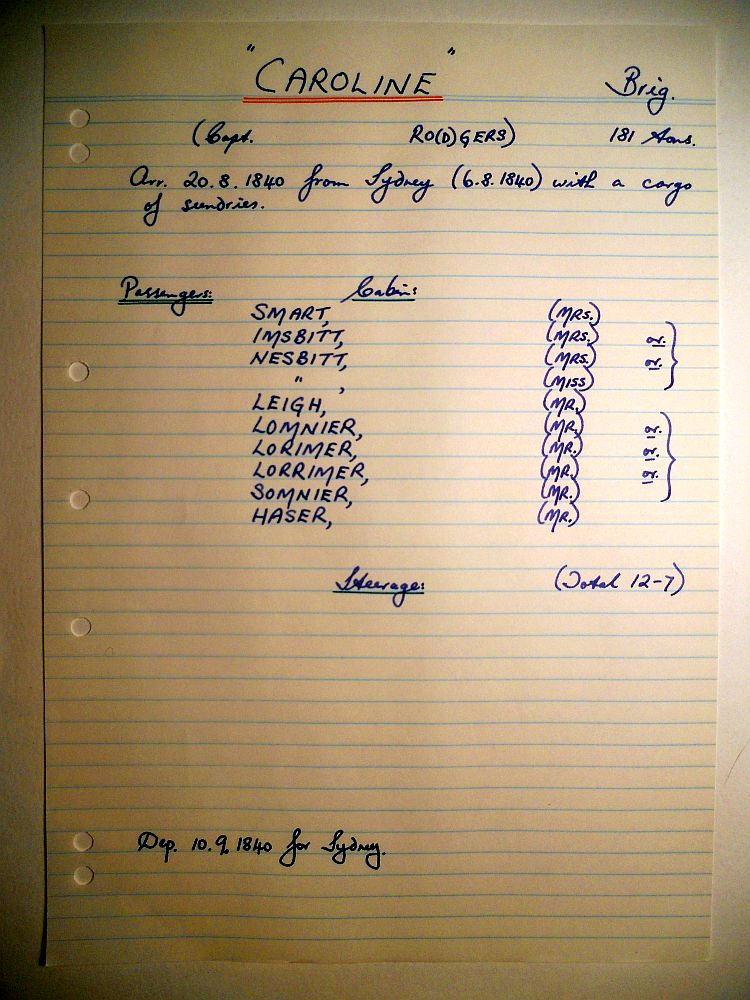 "CAROLINE" Brig.
(Capt. RO(D)GERS) 181 tons.
Arr. 20.8.1840 from Sydney (6.8.1840) with a cargo
of sundries.
Passengers: Cabin:
SMART, (MRS.)
IMSBITT, (MRS.) or.
NESBITT, (MRS.) or.
" , (MISS)
LEIGH, (MR.)
LOMNIER, (MR.) or.
LORIMER, (MR.) or.
LORRIMER, (MR.) or.
SOMNIER, (MR.)
HASER, (MR.)
Steerage: (Total 12-7)
Dep. 10.9.1840 for Sydney.